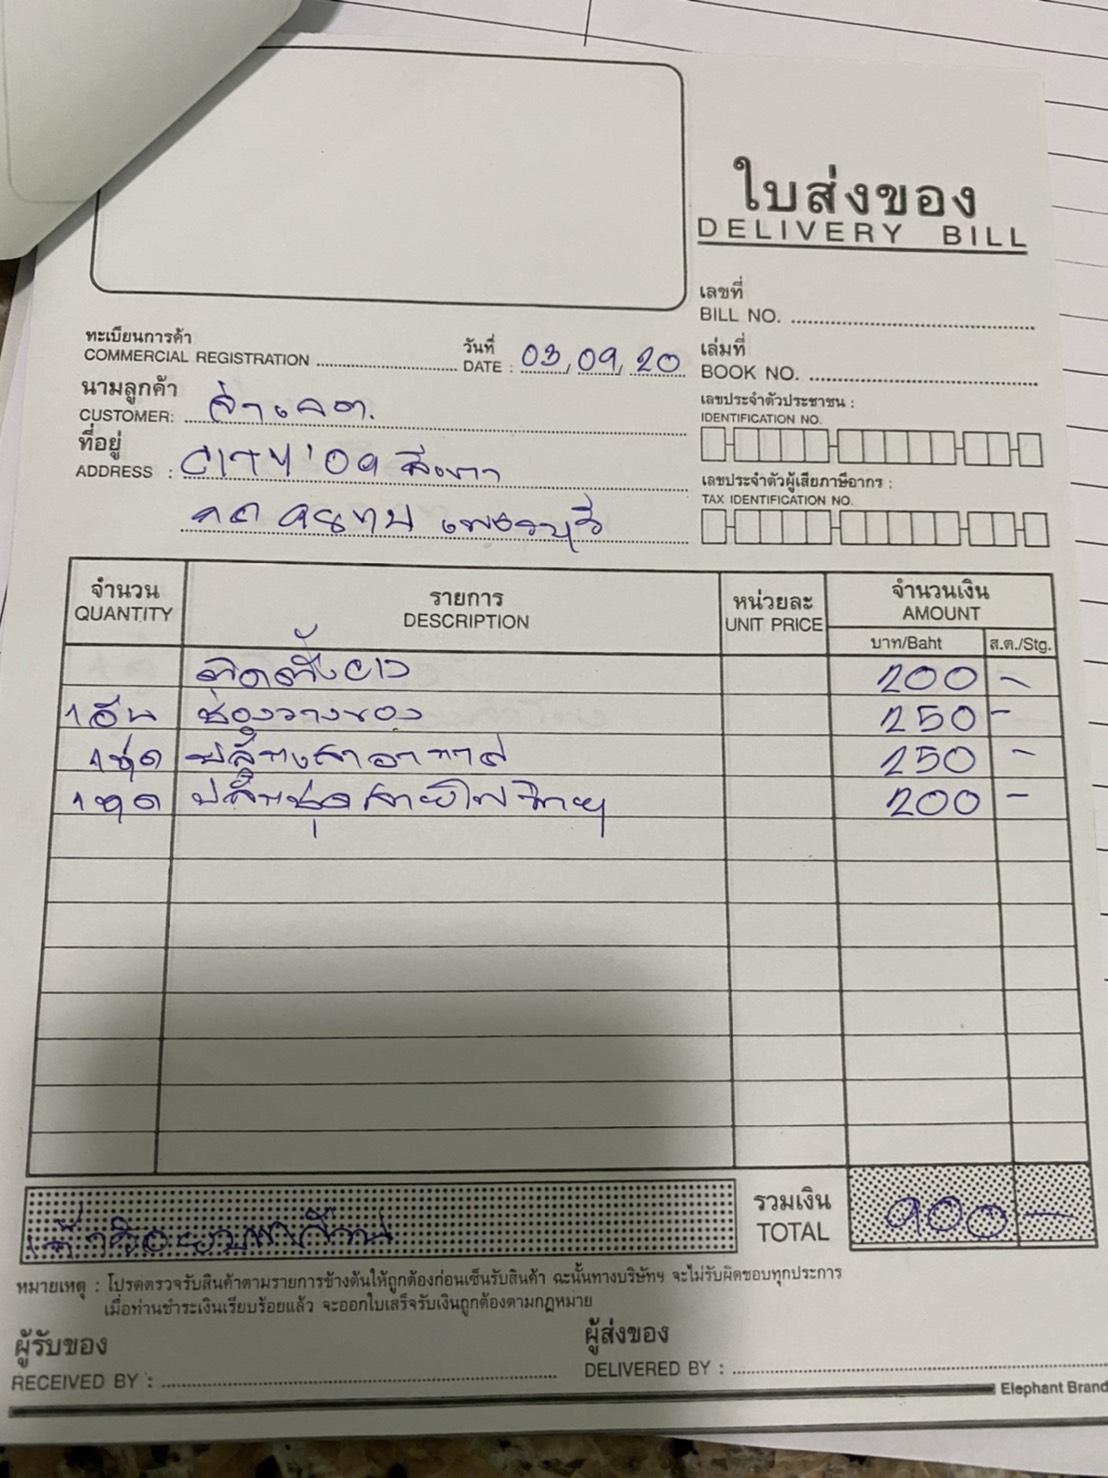 ใบส่งของ
DELIVERY BILL
เลขที่
BILL NO.
ทะเบียนการค้า
COMMERCIAL REGISTRATION
วันที่
DATE : 03, 09, 20
เล่มที่
BOOK NO.
นามลูกค้า
CUSTOMER:
เลขประจำตัวประชาชน :
IDENTIFICATION NO.
ที่อยู่
ADDRESS : CITY '09
เลขประจำตัวผู้เสียภาษีอากร :
TAX IDENTIFICATION NO.
จำนวน
QUANTITY
รายการ
DESCRIPTION
หน่วยละ
UNIT PRICE
จำนวนเงิน
AMOUNT
บาท/Baht
ส.ต./Stg.
ติดตั้ง 200 -
1 อัน ช่องวางของ 250 -
1 ชุด ปลั๊กเสาอากาศ 250 -
1 ชุด ปลั๊กชุดสายไฟวิทยุ 200 -
รวมเงิน
TOTAL 900 -
หมายเหตุ : โปรดตรวจรับสินค้าตามรายการข้างต้นให้ถูกต้องก่อนเซ็นรับสินค้า ฉะนั้นทางบริษัทฯ จะไม่รับผิดชอบทุกประการ
เมื่อท่านชำระเงินเรียบร้อยแล้ว จะออกใบเสร็จรับเงินถูกต้องตามกฎหมาย
ผู้รับของ
RECEIVED BY :
ผู้ส่งของ
DELIVERED BY :
Elephant Brand